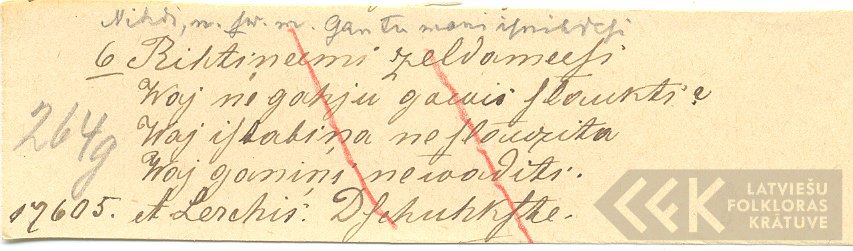 Nikdi, m. sw. m. Gan tu mani isnihdesi
6 Rihtineemi zeldameesi
Waj ne gahju gowis slaukti?
Waj istabina neslauzita
Waj ganiņi newaditi.
264g
17605. A Lerchis. Dschuhkste.
LATVIEŠU
FOLKLORAS
KRĀTUVE